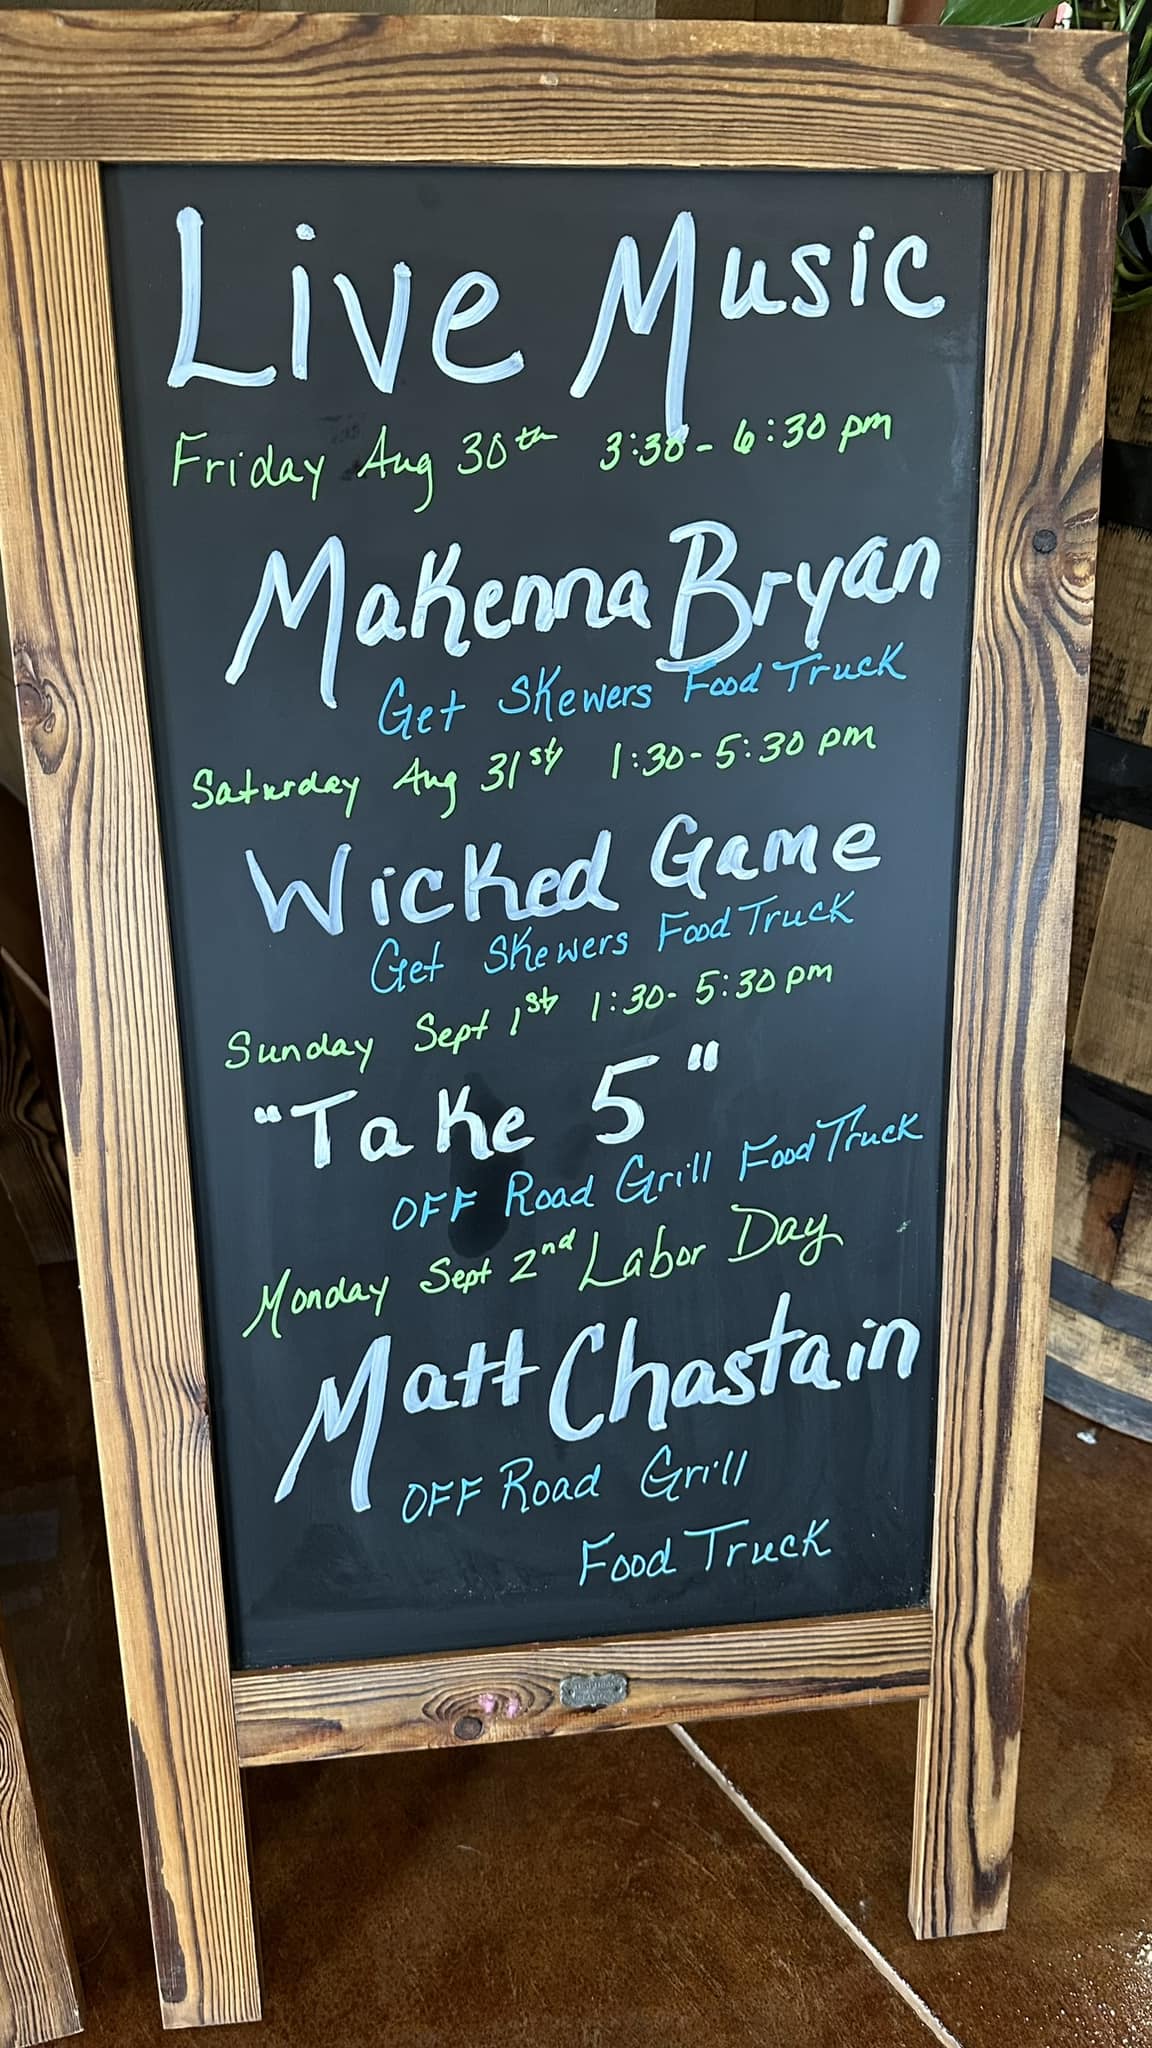 Live Music
Friday Aug 30th 3:30-6:30 pm
Makenna Bryan
Get Skewers Food Truck
Saturday Aug 31st 1:30-5:30 pm
Wicked Game
Get Skewers Food Truck
Sunday Sept 1st 1:30-5:30 pm
"Take 5"
OFF Road Grill Food Truck
Monday Sept 2nd Labor Day
Matt Chastain
OFF Road Grill
Food Truck